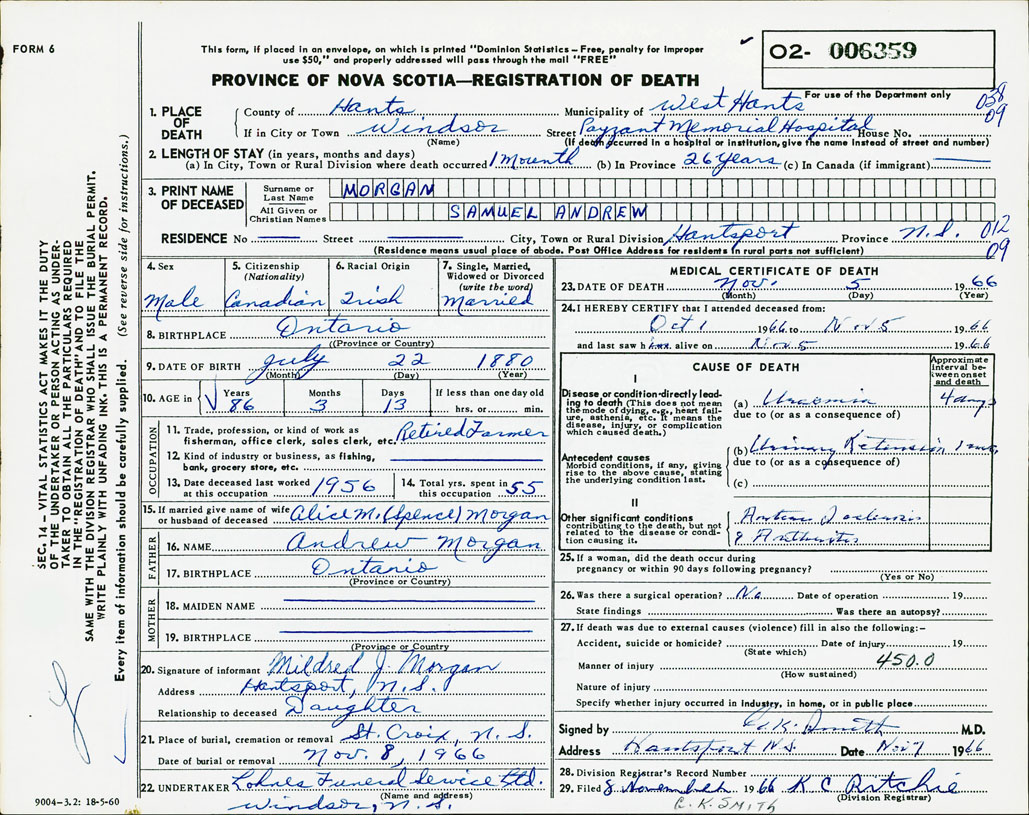 FORM 6
This form, if placed in an envelope, on which is printed "Dominion Statistics – Free, penalty for improper
use $50," and properly addressed will pass through the mail "FREE"
O2- 006359
PROVINCE OF NOVA SCOTIA—REGISTRATION OF DEATH
For use of the Department only
038
09
1. PLACE OF DEATH { County of Hants Municipality of West Hants
If in City or Town Windsor Street Payzant Memorial Hospital House No.
(Name) (If death occurred in a hospital or institution, give the name instead of street and number)
2. LENGTH OF STAY (in years, months and days)
(a) In City, Town or Rural Division where death occurred 1 Mounth (b) In Province 26 Years (c) In Canada (if immigrant)
3. PRINT NAME OF DECEASED { Surname or Last Name MORGAN
All Given or Christian Names SAMUEL ANDREW
RESIDENCE No Street City, Town or Rural Division Hantsport Province N.S. 012
09
(Residence means usual place of abode. Post Office Address for residents in rural parts not sufficient)
4. Sex
Male
5. Citizenship
(Nationality)
Canadian
6. Racial Origin
Irish
7. Single, Married,
Widowed or Divorced
(write the word)
Married
8. BIRTHPLACE Ontario
(Province or Country)
9. DATE OF BIRTH July 22 1880
(Month) (Day) (Year)
10. AGE in { Years Months Days If less than one day old
86 3 13 hrs. or min.
OCCUPATION
11. Trade, profession, or kind of work as
fisherman, office clerk, sales clerk, etc. Retired Farmer
12. Kind of industry or business, as fishing,
bank, grocery store, etc.
13. Date deceased last worked
at this occupation 1956
14. Total yrs. spent in
this occupation 55
15. If married give name of wife
or husband of deceased Alice M. (Spence) Morgan
FATHER
16. NAME Andrew Morgan
17. BIRTHPLACE Ontario
(Province or Country)
MOTHER
18. MAIDEN NAME
19. BIRTHPLACE
(Province or Country)
20. Signature of informant Mildred J. Morgan
Address Hantsport, N.S.
Relationship to deceased Daughter
21. Place of burial, cremation or removal St. Croix, N. S.
Date of burial or removal Nov. 8, 1966
22. UNDERTAKER Lohnes Funeral Service Ltd.
(Name and address)
Windsor, N. S.
MEDICAL CERTIFICATE OF DEATH
23. DATE OF DEATH Nov. 5 1966
(Month) (Day) (Year)
24. I HEREBY CERTIFY that I attended deceased from:
Oct 1 1966 to Nov 5 1966
and last saw him alive on Nov 5 1966
CAUSE OF DEATH
Approximate
interval be-
tween onset
and death
I
Disease or condition directly lead-
ing to death (This does not mean
the mode of dying, e.g., heart fail-
ure, asthenia, etc. It means the
disease, injury, or complication
which caused death.)
(a) Uraemia 4 days
due to (or as a consequence of)
Antecedent causes
Morbid conditions, if any, giving
rise to the above cause, stating
the underlying condition last.
(b) Urinary Retension 1 mo.
due to (or as a consequence of)
(c)
II
Other significant conditions
contributing to the death, but not
related to the disease or condi-
tion causing it.
& Arthritis
25. If a woman, did the death occur during
pregnancy or within 90 days following pregnancy?
(Yes or No)
26. Was there a surgical operation? No Date of operation 19
State findings Was there an autopsy?
27. If death was due to external causes (violence) fill in also the following:–
Accident, suicide or homicide? Date of injury 19
(State which)
450.0
Manner of injury
(How sustained)
Nature of injury
Specify whether injury occurred in industry, in home, or in public place
Signed by C.K. Smith M.D.
Address Hantsport N.S. Date Nov 7 1966
28. Division Registrar's Record Number
29. Filed 8 November 1966 K C Ritchie
(Division Registrar)
C. K. SMITH
SEC. 14 – VITAL STATISTICS ACT MAKES IT THE DUTY
OF THE UNDERTAKER OR PERSON ACTING AS UNDER-
TAKER TO OBTAIN ALL THE PARTICULARS REQUIRED
IN THE "REGISTRATION OF DEATH" AND TO FILE THE
SAME WITH THE DIVISION REGISTRAR WHO SHALL ISSUE THE BURIAL PERMIT.
WRITE PLAINLY WITH UNFADING INK. THIS IS A PERMANENT RECORD.
Every item of information should be carefully supplied. (See reverse side for instructions.)
9004-3.2: 18-5-60